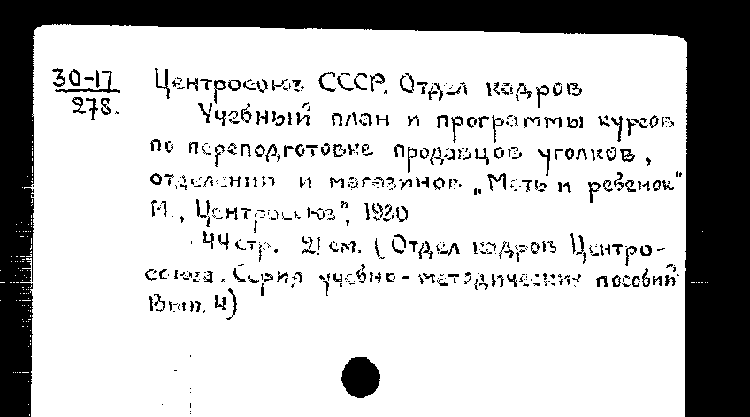 30-17 Центросоюз СССР. Отдел кадров
278. Учебный план и программы курсов
по переподготовке продавцов уголков,
отделений и магазинов „Мать и ребенок"
М., „Центросоюз", 1930
44 стр. 21 см. (Отдел кадров Центро-
союза. Серия учебно-методических пособий
Вып. 4)